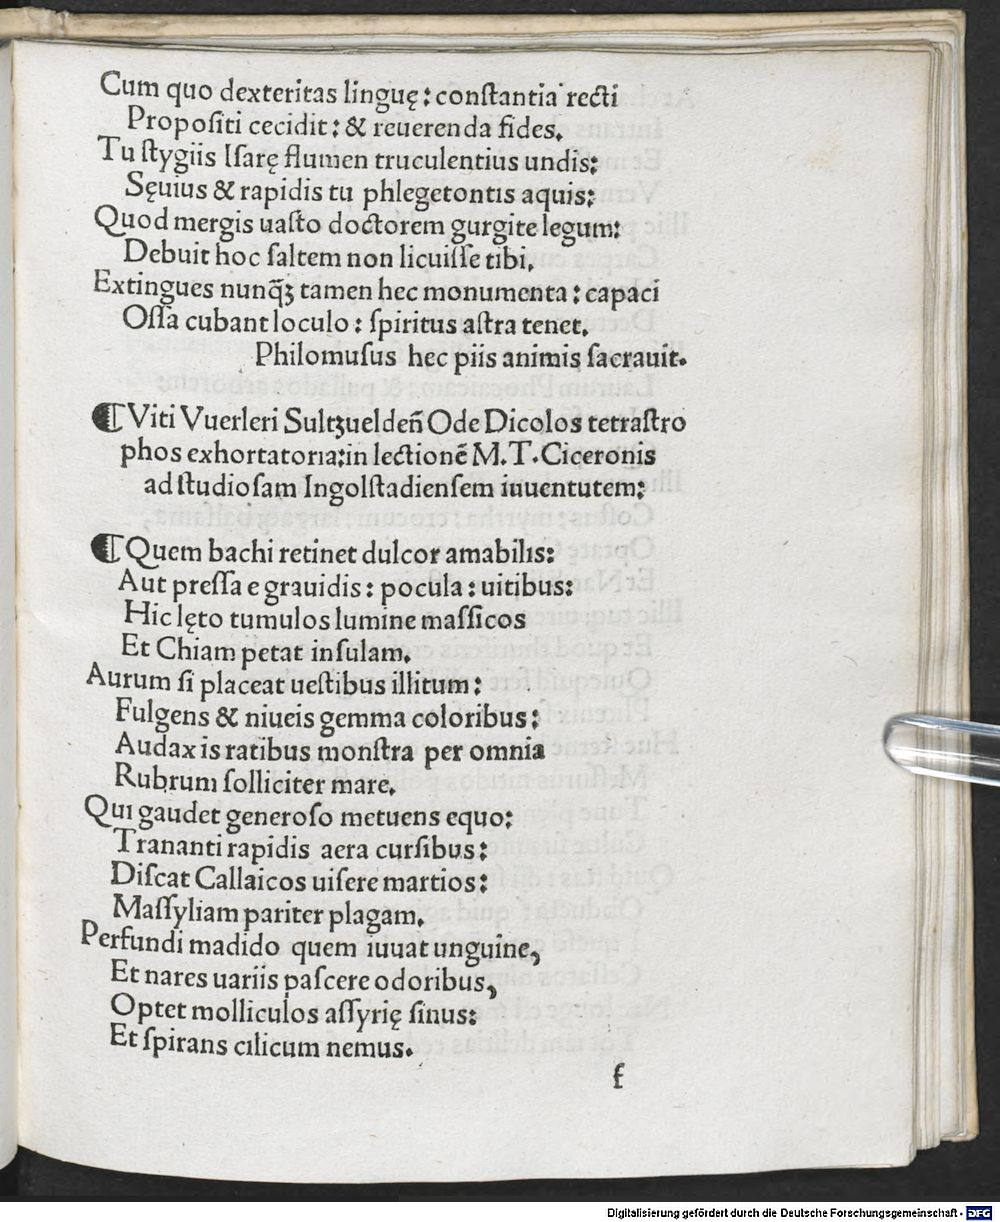 Cum quo dexteritas linguę: conſtantia recti
Propoſiti cecidit: & reuerenda fides.
Tu ſtygiis Iſarę flumen truculentius undis:
Sęuius & rapidis tu phlegetontis aquis:
Quod mergis uaſto doctorem gurgite legum:
Debuit hoc ſaltem non licuiſſe tibi.
Extingues nunq̃ꝫ tamen hec monumenta: capaci
Oſſa cubant loculo: ſpiritus aſtra tenet.
Philomuſus hec piis animis ſacrauit.
¶ Viti Vuerleri Sultʒueldeñ Ode Dicolos tetraſtro
phos exhortatoria: in lectionē M.T. Ciceronis
ad ſtudioſam Ingolſtadienſem iuuentutem:
¶ Quem bachi retinet dulcor amabilis:
Aut preſſa e grauidis: pocula: uitibus:
Hic lęto tumulos lumine maſſicos
Et Chiam petat inſulam.
Aurum ſi placeat ueſtibus illitum:
Fulgens & niueis gemma coloribus:
Audax is ratibus monſtra per omnia
Rubrum ſolliciter mare.
Qui gaudet generoſo metuens equo:
Trananti rapidis aera curſibus:
Diſcat Callaicos uiſere martios:
Maſſyliam pariter plagam.
Perfundi madido quem iuuat unguine,
Et nares uariis paſcere odoribus,
Optet molliculos aſſyrię ſinus:
Et ſpirans cilicum nemus.
f
Digitalisierung gefördert durch die Deutsche Forschungsgemeinschaft - DFG